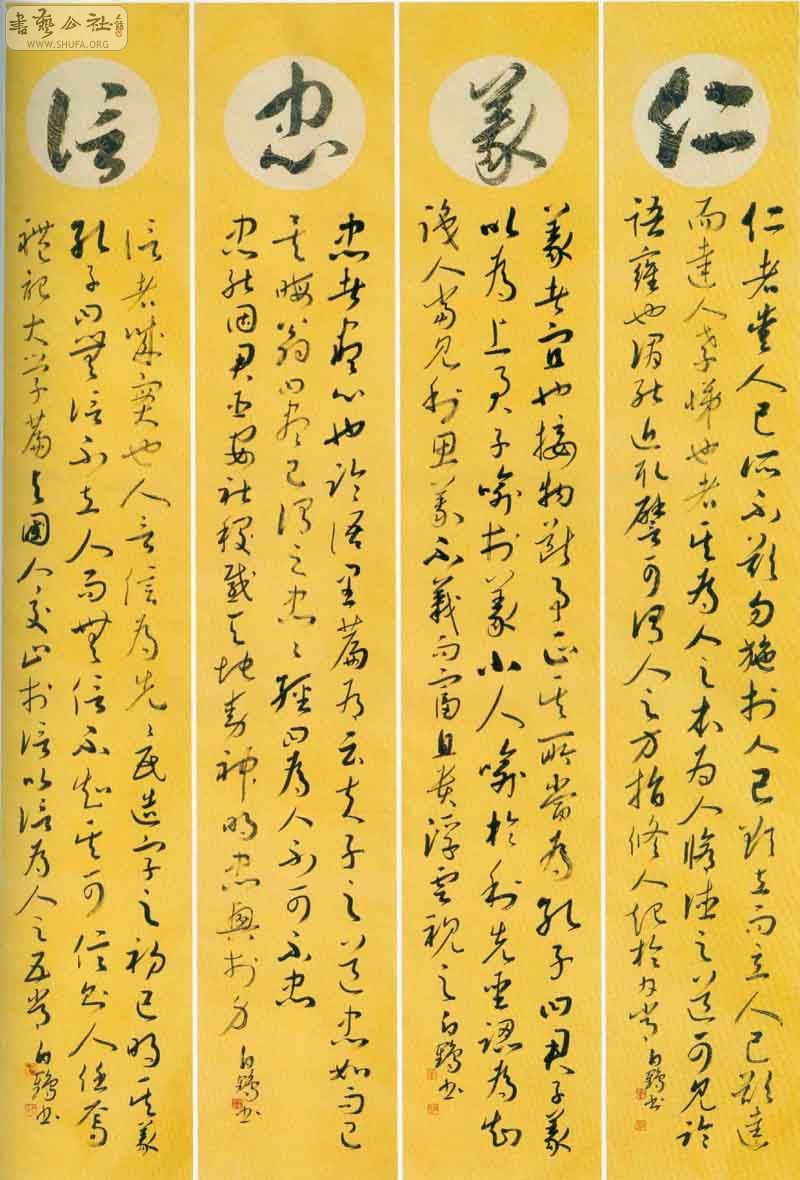 書藝公社
WWW.SHUFA.ORG
仁
仁者愛人己所不欲勿施於人己欲立而立人己欲達
而達人孝悌也者其為人之本為人修德之道可見論
語雍也謂能近取譬可謂人之方指修人起於
白鶴書
義
義者宜也接物斷事正其所當為孔子曰君子義
以為上君子喻於義小人喻於利先聖認為知
識人當見利思義不義而富且貴浮雲視之白鶴書
忠
忠者盡心也論語里篇有云夫子之道忠如而已
矣晦翁曰盡己謂之忠忠經曰為人不可不忠
忠能固君臣安社稷感天地動神明忠興於身
白鶴書
信
信者誠實也人言信為先先民造字之初已明其義
孔子曰無信不立人而無信不知其可信則人任焉
禮記大學篇與國人交止於信以信為人之五常白鶴書